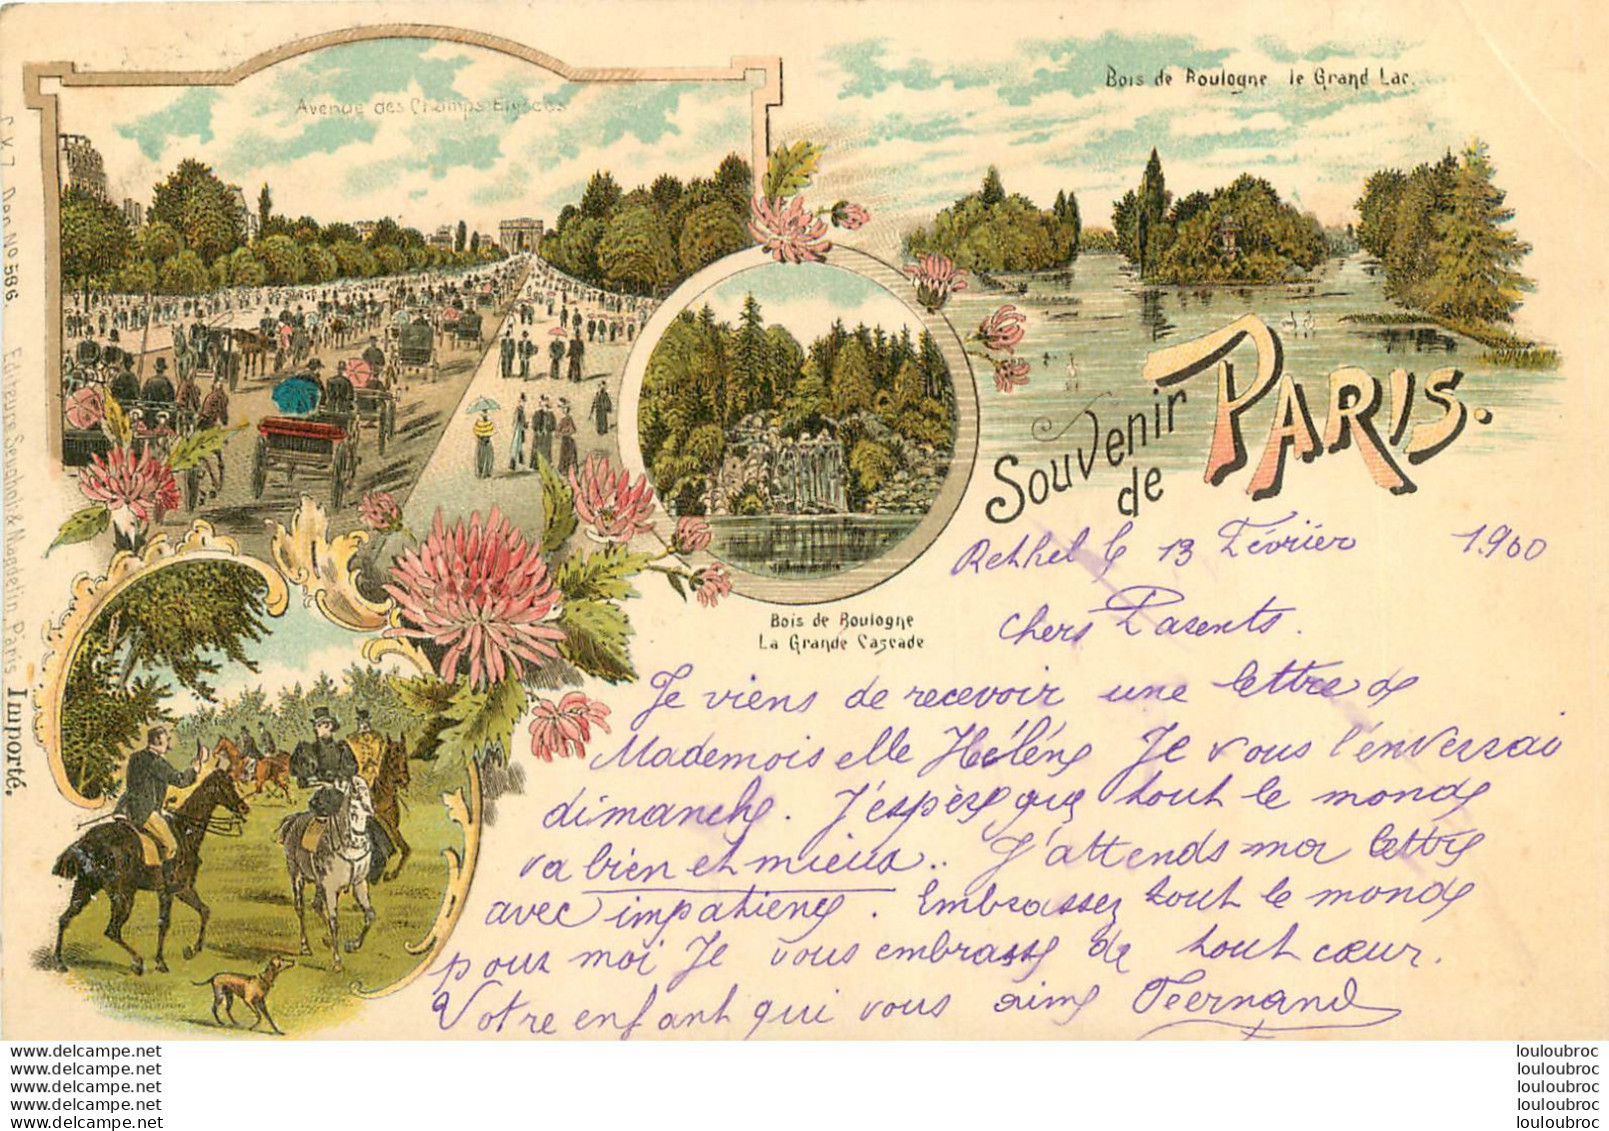 Avenue des Champs Elysées
Bois de Boulogne le Grand Lac.
Souvenir
de PARIS.
Bois de Boulogne
La Grande Cascade
Dep. No 586. Editeurs Magdelin, Paris Importé.
Rethel le 13 Février 1900
Chers Parents.
Je viens de recevoir une lettre de
Mademoiselle Hélène Je vous l'enverrai
dimanche. J'espère que tout le monde
va bien et mieux.. J'attends ma lettre
avec impatience. Embrassez tout le monde
pour moi Je vous embrasse de tout cœur.
Votre enfant qui vous aime Fernand
www.delcampe.net
www.delcampe.net
www.delcampe.net
www.delcampe.net
www.delcampe.net
louloubroc
louloubroc
louloubroc
louloubroc
louloubroc